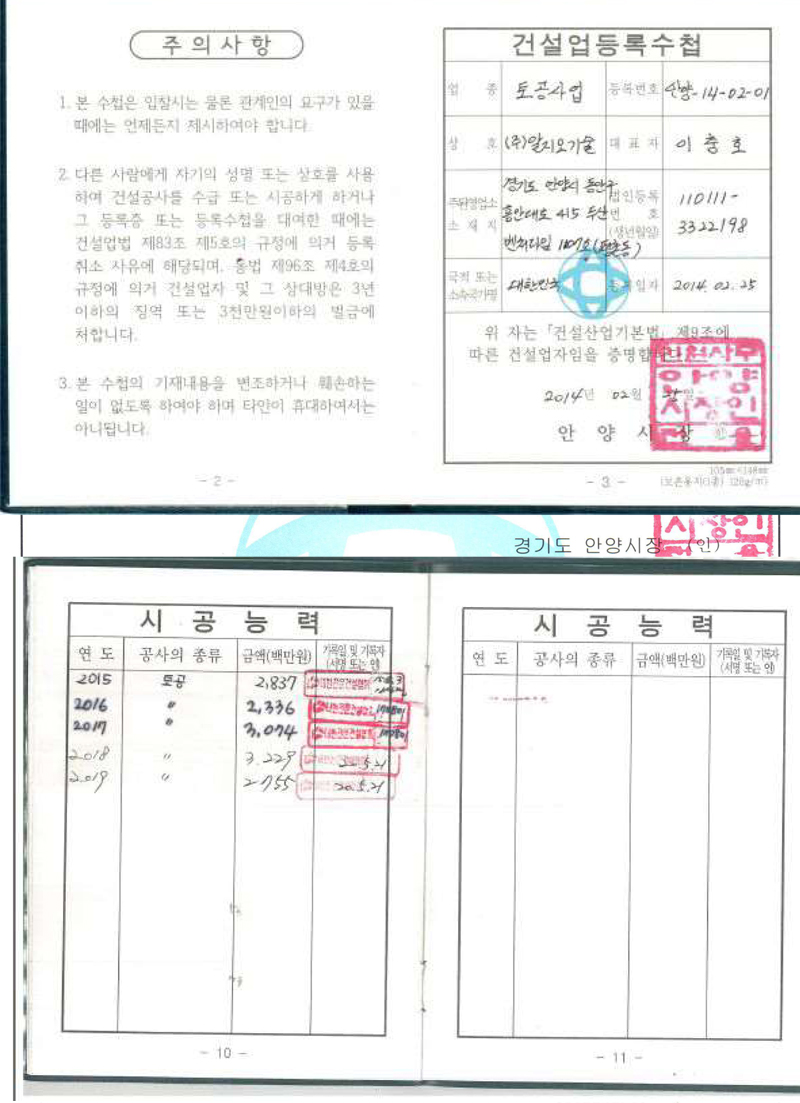 주 의 사 항
1. 본 수첩은 입찰시는 물론 관계인의 요구가 있을
때에는 언제든지 제시하여야 합니다
2. 다른 사람에게 자기의 성명 또는 상호를 사용
하여 건설공사를 수급 또는 시공하게 하거나
그 등록증 또는 등록수첩을 대여한 때에는
건설업법 제83조 제5호의 규정에 의거 등록
취소 사유에 해당되며, 동법 제96조 제4호의
규정에 의거 건설업자 및 그 상대방은 3년
이하의 징역 또는 3천만원이하의 벌금에
처합니다.
3. 본 수첩의 기재내용을 변조하거나 훼손하는
일이 없도록 하여야 하며 타인이 휴대하여서는
아니됩니다.
- 2 -
건설업등록수첩
업 종 토공사업 등록번호 안양-14-02-01
상 호 (주)알지오기술 대 표 자 이 충 호
주된영업소 소 재 지 경기도 안양시 동안구
흥안대로 415 두산
벤처다임 1107호 (평촌동)
법인등록 번 호 (생년월일) 110111-
3322198
국적 또는 소속국가명 대한민국 등록일자 2014. 02. 25
위 자는 「건설산업기본법」 제9조에
따른 건설업자임을 증명합니다.
2014년 02월 25일
안 양 시 장
- 3 -
105㎜×148㎜
(보존용지(1종) 120g/㎡)
경기도 안양시장 (인)
시 공 능 력
연 도 공사의 종류 금액(백만원) 기록일 및 기록자 (서명 또는 인)
2015 토공 2,837
2016 〃 2,336
2017 〃 3,074
2018 〃 3,229
2019 〃 2,755 20.5.21
- 10 -
시 공 능 력
연 도 공사의 종류 금액(백만원) 기록일 및 기록자 (서명 또는 인)
- 11 -